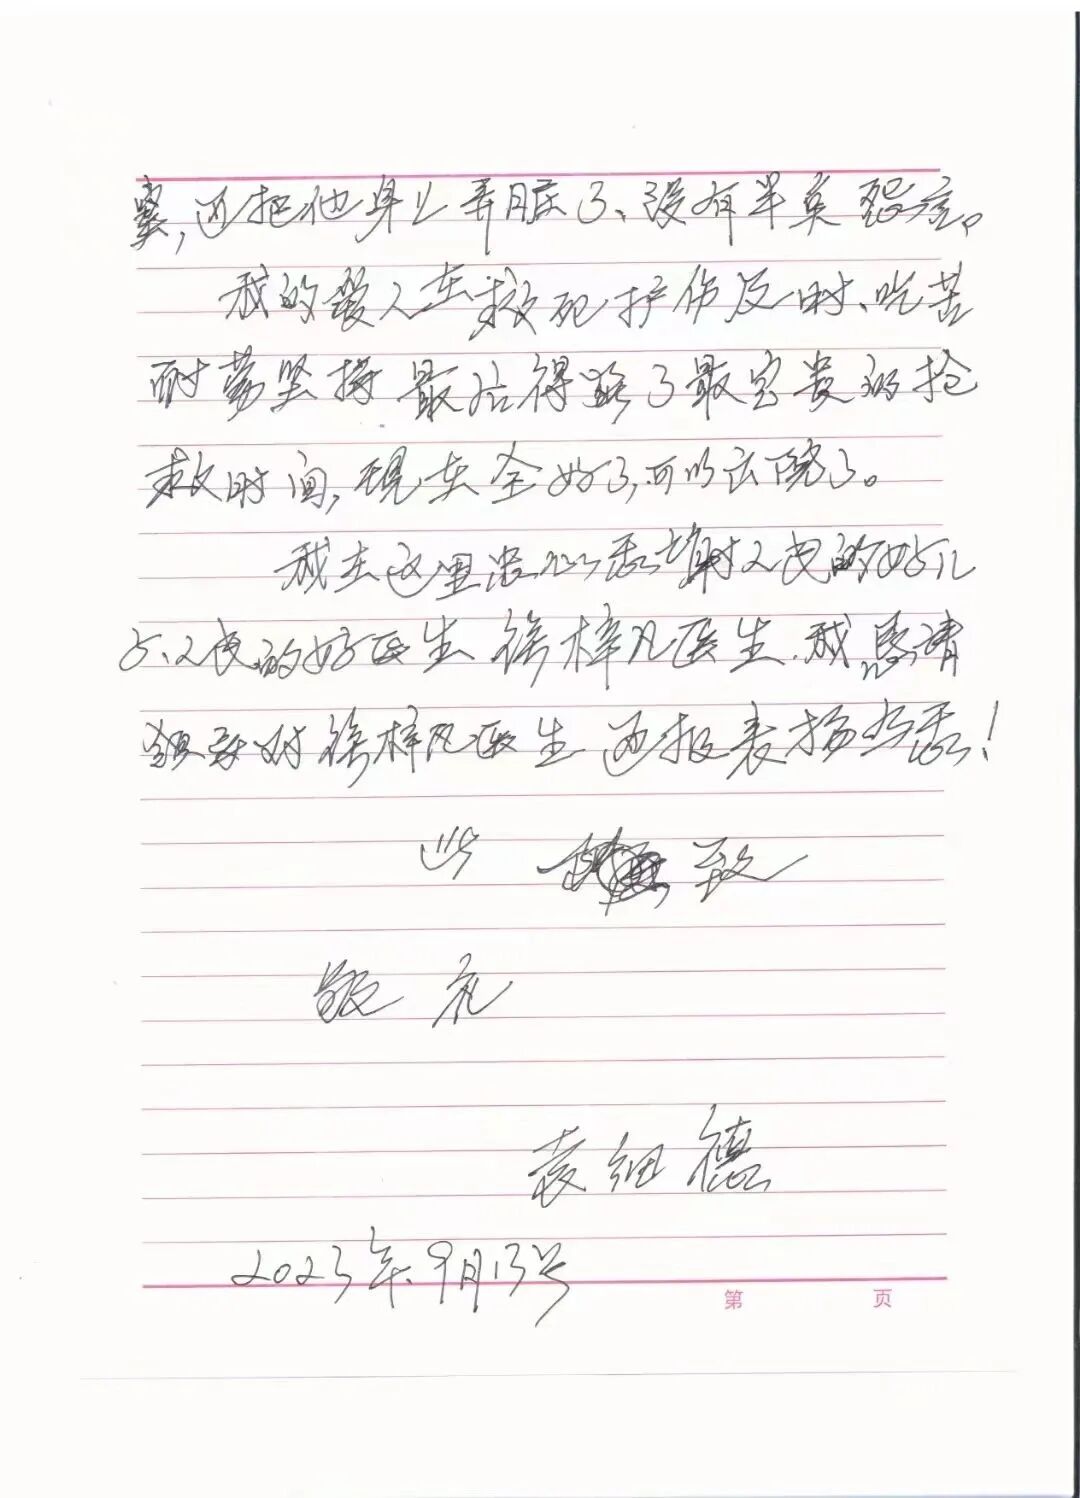 这把他身上弄脏了、没有半点怨言。
我的爱人在救死护伤及时、吃苦
耐劳坚持最后得到了最宝贵的抢
救时间,现在全好了,可以出院了。
我在这里衷心感谢人民的好儿
子、人民的好医生徐梓凡医生.我恳请
领导对徐梓凡医生通报表扬
此 致
敬 礼
袁细德
2023年.9月13号
第 页